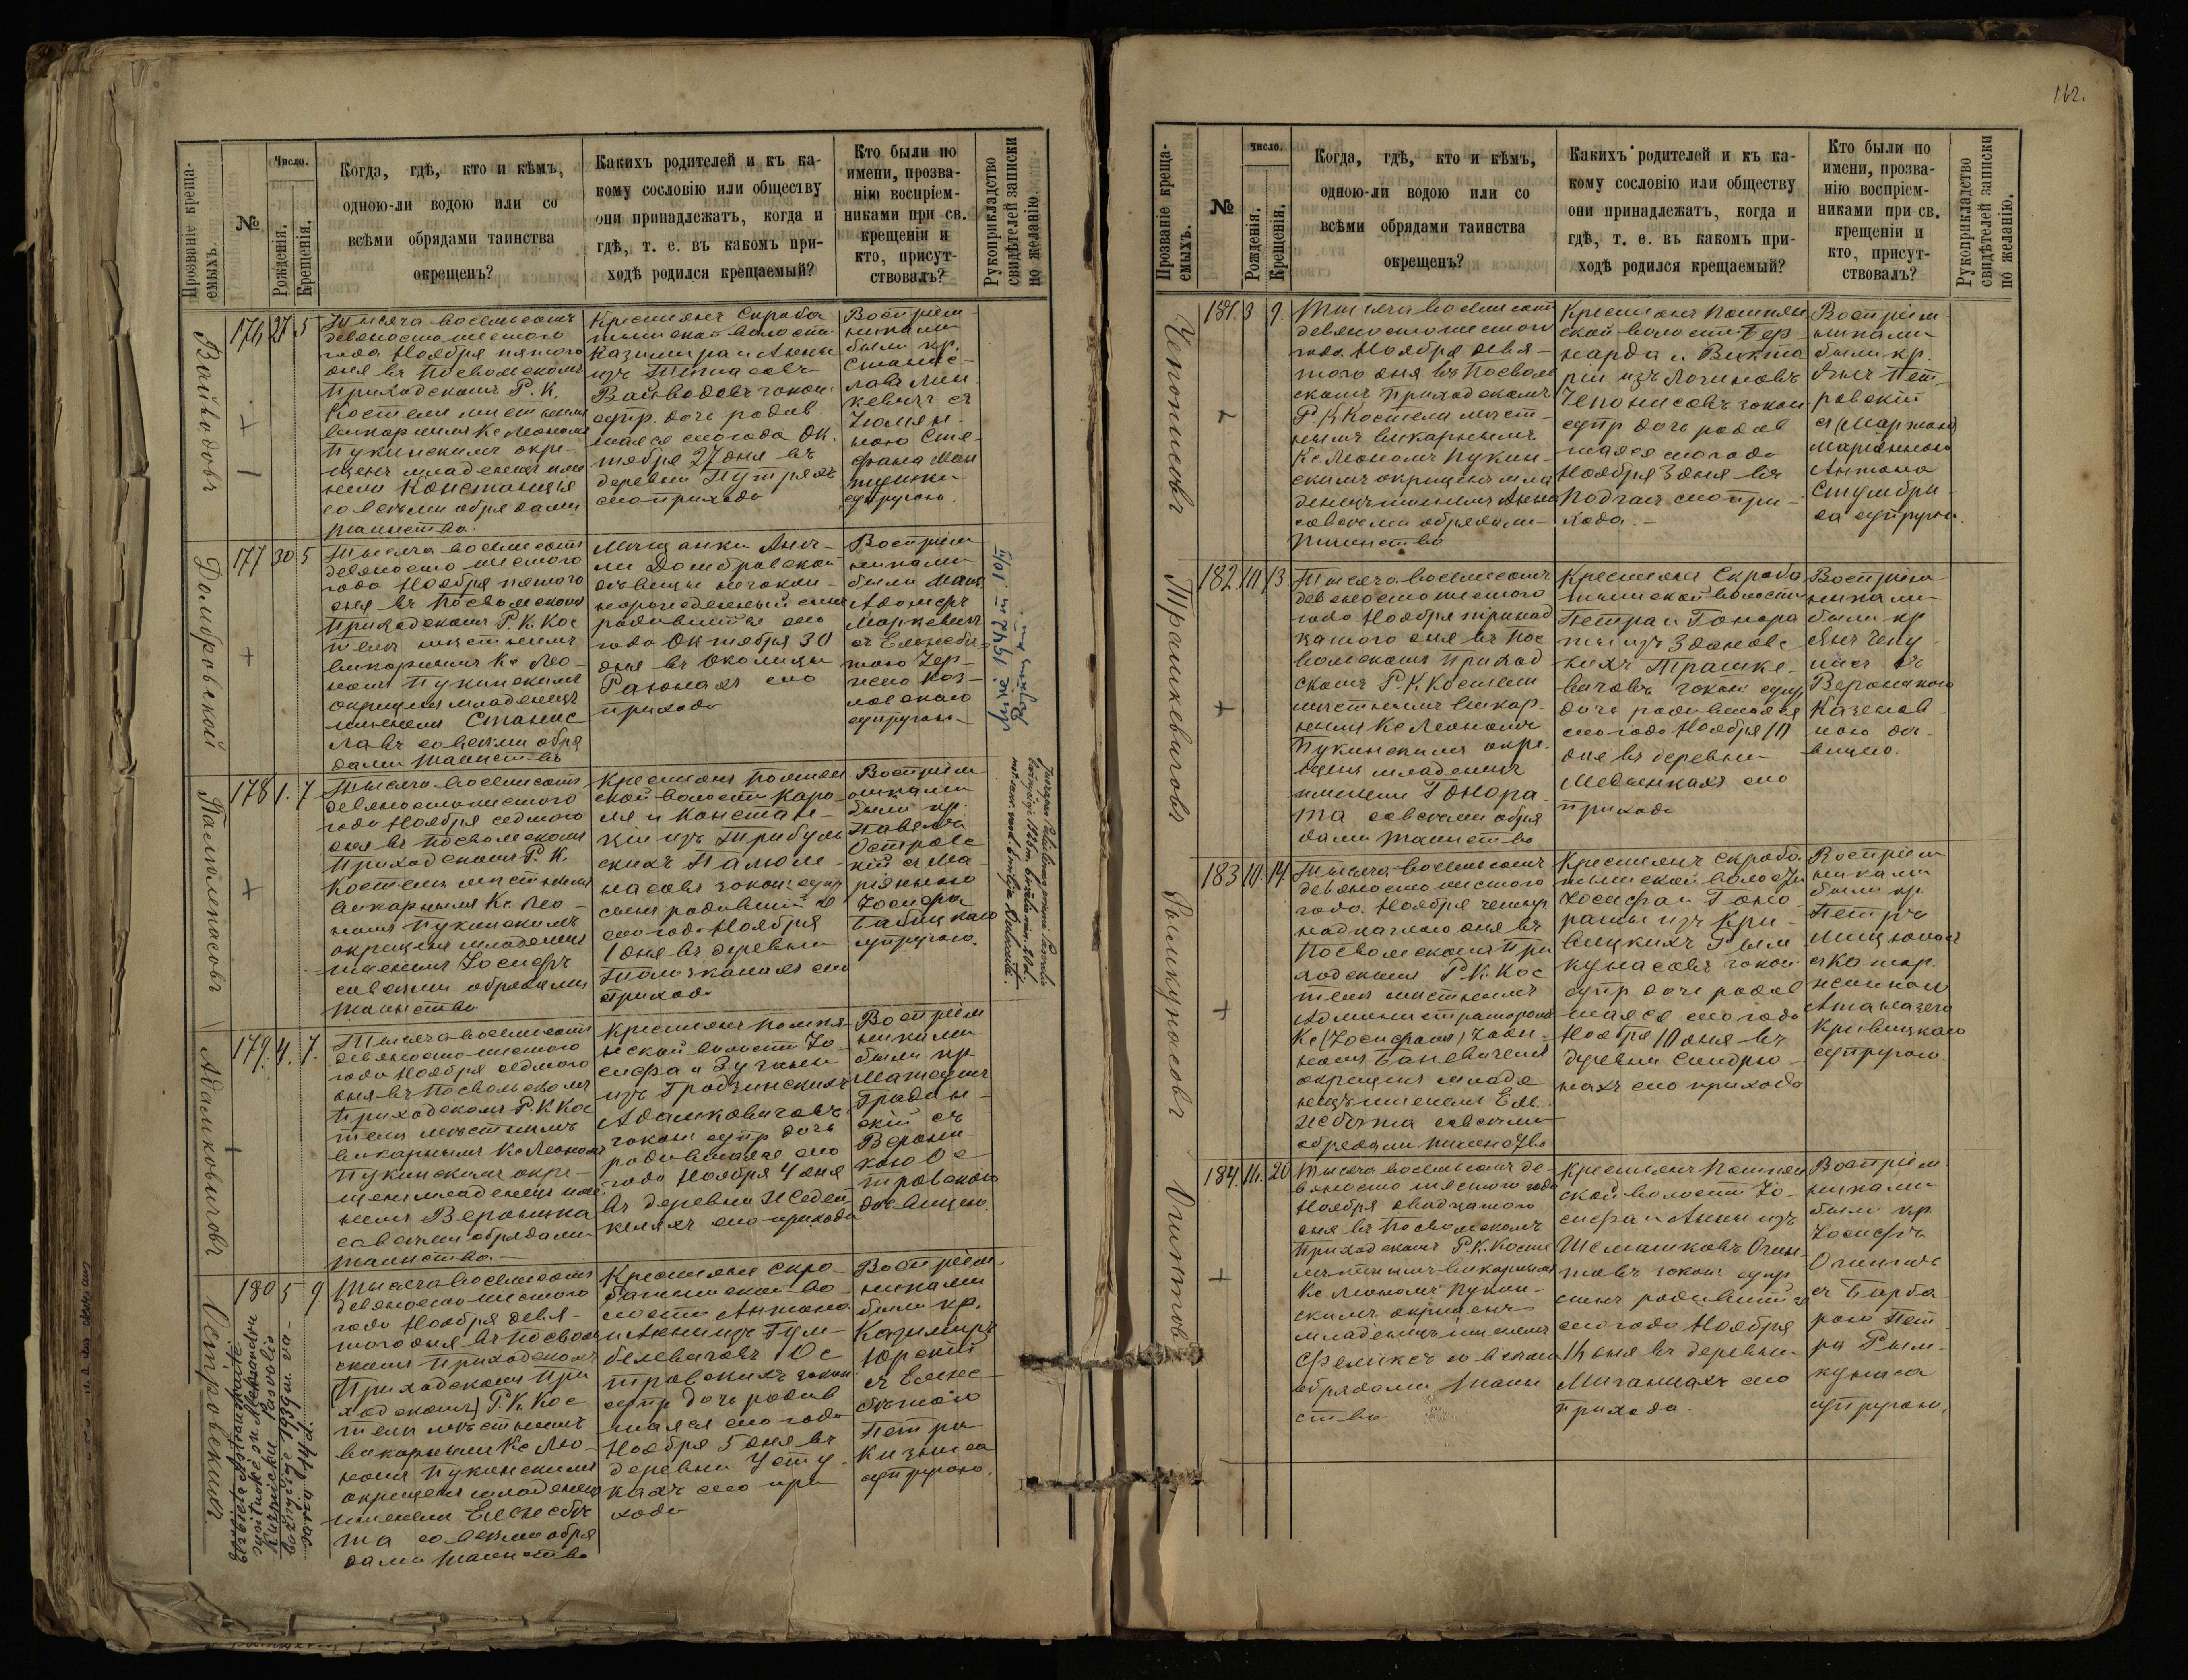 Прозваніе креща-
емыхъ.
№
Число.
Рожденія.
Крещенія.
Когда, гдѣ, кто и кѣмъ,
одною-ли водою или со
всѣми обрядами таинства
окрещенъ?
Какихъ родителей и къ ка-
кому сословію или обществу
они принадлежатъ, когда и
гдѣ, т. е. въ какомъ при-
ходѣ родился крещаемый?
Кто были по
имени, прозва-
нію воспріем-
никами при св.
крещеніи и
кто, присут-
ствовалъ?
Рукоприкладство
свидѣтелей записки
по желанію.
Войводовъ
176 27 5
Тысяча восемьсотъ
девяносто шестого
года Ноября пятого
дня въ Посвольскомъ
Приходскомъ Р. К.
Костелѣ мѣстнымъ
викарнымъ Кс Леономъ
Пукинскимъ окре-
щенъ младенецъ име
немъ Констанція
со всѣми обрядами
таинства.
Крестьянъ Скроба
тышской волости
Казимира и Анны
изъ
Войводовъ закон
супр. дочь родив
шаяся сего года Ок-
тября 27 дня въ
деревнѣ Путряхъ
сего прихода
Воспріем
никами
были кр.
Станис-
лавъ Мин
кевичъ съ
Стефана
супругою.
Домбровской
177 30 5
Тысяча восемьсотъ
девяносто шестого
года Ноября пятого
дня въ Посвольскомъ
Приходскомъ Р. К. Кос
телѣ мѣстнымъ
викарнымъ Кс Лео-
номъ Пукинскимъ
окрещенъ младенецъ
именемъ Станис
лавъ со всѣми обря
дами таинства
Мѣщанки Анѣ-
ли Домбровской
дѣвицы незакон-
норожденный сынъ
родившійся сего
года Октября 30
дня въ Околицѣ
Раюнахъ сего
прихода
Воспріем
никами
были
Адольфъ
Маркевичъ
съ Елисаве-
тою
супругою
Mirė 1942 m. 101
Палюленасовъ
178 1. 7.
Тысяча восемьсотъ
девяносто шестого
года Ноября седмого
дня въ Посвольскомъ
Приходскомъ Р. К.
Костелѣ мѣстнымъ
викарнымъ Кс Лео-
номъ Пукинскимъ
окрещенъ младенецъ
именемъ Іосифъ
со всѣми обрядами
таинства
Крестьянъ Помпян
ской волости Каро-
ля и Констан-
ціи изъ Трибуль
скихъ Палюле-
насовъ закон супр
сынъ родившійся
сего года Ноября
1 дня въ деревнѣ
сего
прихода
Воспріем
никами
были кр.
Павелъ
Островс
кій съ Ма-
ріянною
Іосифа
Бабицкаго
супругою.
Адамковичовъ
179. 4. 7.
Тысяча восемьсотъ
девяносто шестого
года Ноября седмого
дня въ Посвольскомъ
Приходскомъ Р. К Кос
телѣ мѣстнымъ
викарнымъ Кс Леономъ
Пукинскимъ окре-
щенъ младенецъ име
немъ Вероника
со всѣми обрядами
таинства.
Крестьянъ Помпя-
нской волости Іо-
сифа и Зузанны
изъ Гродзинскихъ
Адамковичовъ
закон супр дочь
родившаяся сего
года Ноября 4 дня
въ деревнѣ
сего прихода
Воспріем
никами
были кр
Матеушъ
Гродзин-
скій съ
Верони-
кою Ос-
тровскою
дѣвицею.
Островскихъ.
180 5 9
Тысяча восемьсотъ
девяносто шестого
года Ноября девя-
того дня въ Посволь
скомъ Приходскомъ
(Приходскомъ При
ходскомъ) Р. К. Кос
телѣ мѣстнымъ
викарнымъ Кс Лео-
номъ Пукинскимъ
окрещенъ младенецъ
именемъ Елисаве
та со всѣми обря
дами таинства
Крестьянъ Скро-
батышской во-
лости Антона
и Анны изъ Гум-
белевичовъ Ос
тровскихъ закон
супр дочь родив
шаяся сего года
Ноября 5 дня въ
деревнѣ Усту-
кахъ сего при
хода
Воспріем
никами
были кр.
Казимиръ
Юрскій
съ Елиса-
бетою
Петра
Кизиса
супругою.
Pasvalio
bažnyčioje 1939 m. va-
sario 14 d.
162.
Прозваніе креща-
емыхъ.
№
Число.
Рожденія.
Крещенія.
Когда, гдѣ, кто и кѣмъ,
одною-ли водою или со
всѣми обрядами таинства
окрещенъ?
Какихъ родителей и къ ка-
кому сословію или обществу
они принадлежатъ, когда и
гдѣ, т. е. въ какомъ при-
ходѣ родился крещаемый?
Кто были по
имени, прозва-
нію воспріем-
никами при св.
крещеніи и
кто, присут-
ствовалъ?
Рукоприкладство
свидѣтелей записки
по желанію.
Чепонисовъ
181. 3 9
Тысяча восемьсотъ
девяносто шестого
года Ноября девя-
того дня въ Посволь
скомъ Приходскомъ
Р. К Костелѣ мѣст-
нымъ викарнымъ
Кс Леономъ Пукин-
скимъ окрещенъ мла
денецъ именемъ Анна
со всѣми обрядами
таинства
Крестьянъ Помпян
ской волости Бер-
нарда и Викто
ріи изъ Логиновъ
Чепонисовъ закон
супр дочь родив
шаяся сего года
Ноября 3 дня въ
сего при-
хода.
Воспріем
никами
были кр.
Янъ Пет-
ровскій
съ (Маріанною)
Маріанною
Антона
Стумбри-
са супругою.
Трашкевичовъ
182. 10 13
Тысяча восемьсотъ
девяносто шестого
года Ноября тринад
цатого дня въ Пос
вольскомъ Приход
скомъ Р. К. Костелѣ
мѣстнымъ викар-
нымъ Кс Леономъ
Пукинскимъ окре-
щенъ младенецъ
именемъ Гонора-
та со всѣми обря
дами таинства
Крестьянъ Скроба
тышской волости
Петра и Гонора
ты изъ Здановс
кихъ Трашке-
вичовъ закон супр
дочь родившаяся
сего года Ноября 10
дня въ деревнѣ
Медынкахъ сего
прихода
Воспріем
никами
были кр
Янъ Чепу
лисъ съ
Вероникою
дѣ-
вицею.
Рымкунасовъ
183 10. 14
Тысяча восемьсотъ
девяносто шестого
года. Ноября четыр
надцатого дня въ
Посвольскомъ При
ходскомъ Р. К. Кос
телѣ мѣстнымъ
Администраторомъ
Кс (Іосифомъ) Іоан-
номъ Баневичемъ
окрещенъ младе
нецъ именемъ Ели
забета со всѣми
обрядами таинства
Крестьянъ Скроба-
тышской волости
Іосифа и Гоно-
раты изъ Кри-
вицкихъ Рым
кунасовъ закон
супр дочь родив
шаяся сего года
Ноября 10 дня въ
деревнѣ Синдрю-
нахъ сего прихода
Воспріем
никами
были кр
Петръ
Мицюнасъ
съ Катар-
жиною
Атаназего
Кривицкаго
супругою.
Огинтовъ
184. 16. 20
Тысяча восемьсотъ де-
вяносто шестого года
Ноября двадцатого
дня въ Посвольскомъ
Приходскомъ Р. К. Косте
лѣ мѣстнымъ викарнымъ
Кс Леономъ Пукин-
скимъ окрещенъ
младенецъ именемъ
Феликсъ со всѣми
обрядами таин
ства
Крестьянъ Помпян
ской волости Іо-
сифа и Анны изъ
Шемашковъ Огин-
товъ закон супр
сынъ родившійся
сего года Ноября
16 дня въ деревнѣ
Миганцахъ сего
прихода.
Воспріем.
никами
были кр
Іосифъ
Огинтъ
съ Барба
рою Пет
ра Рым-
кунаса
супругою.